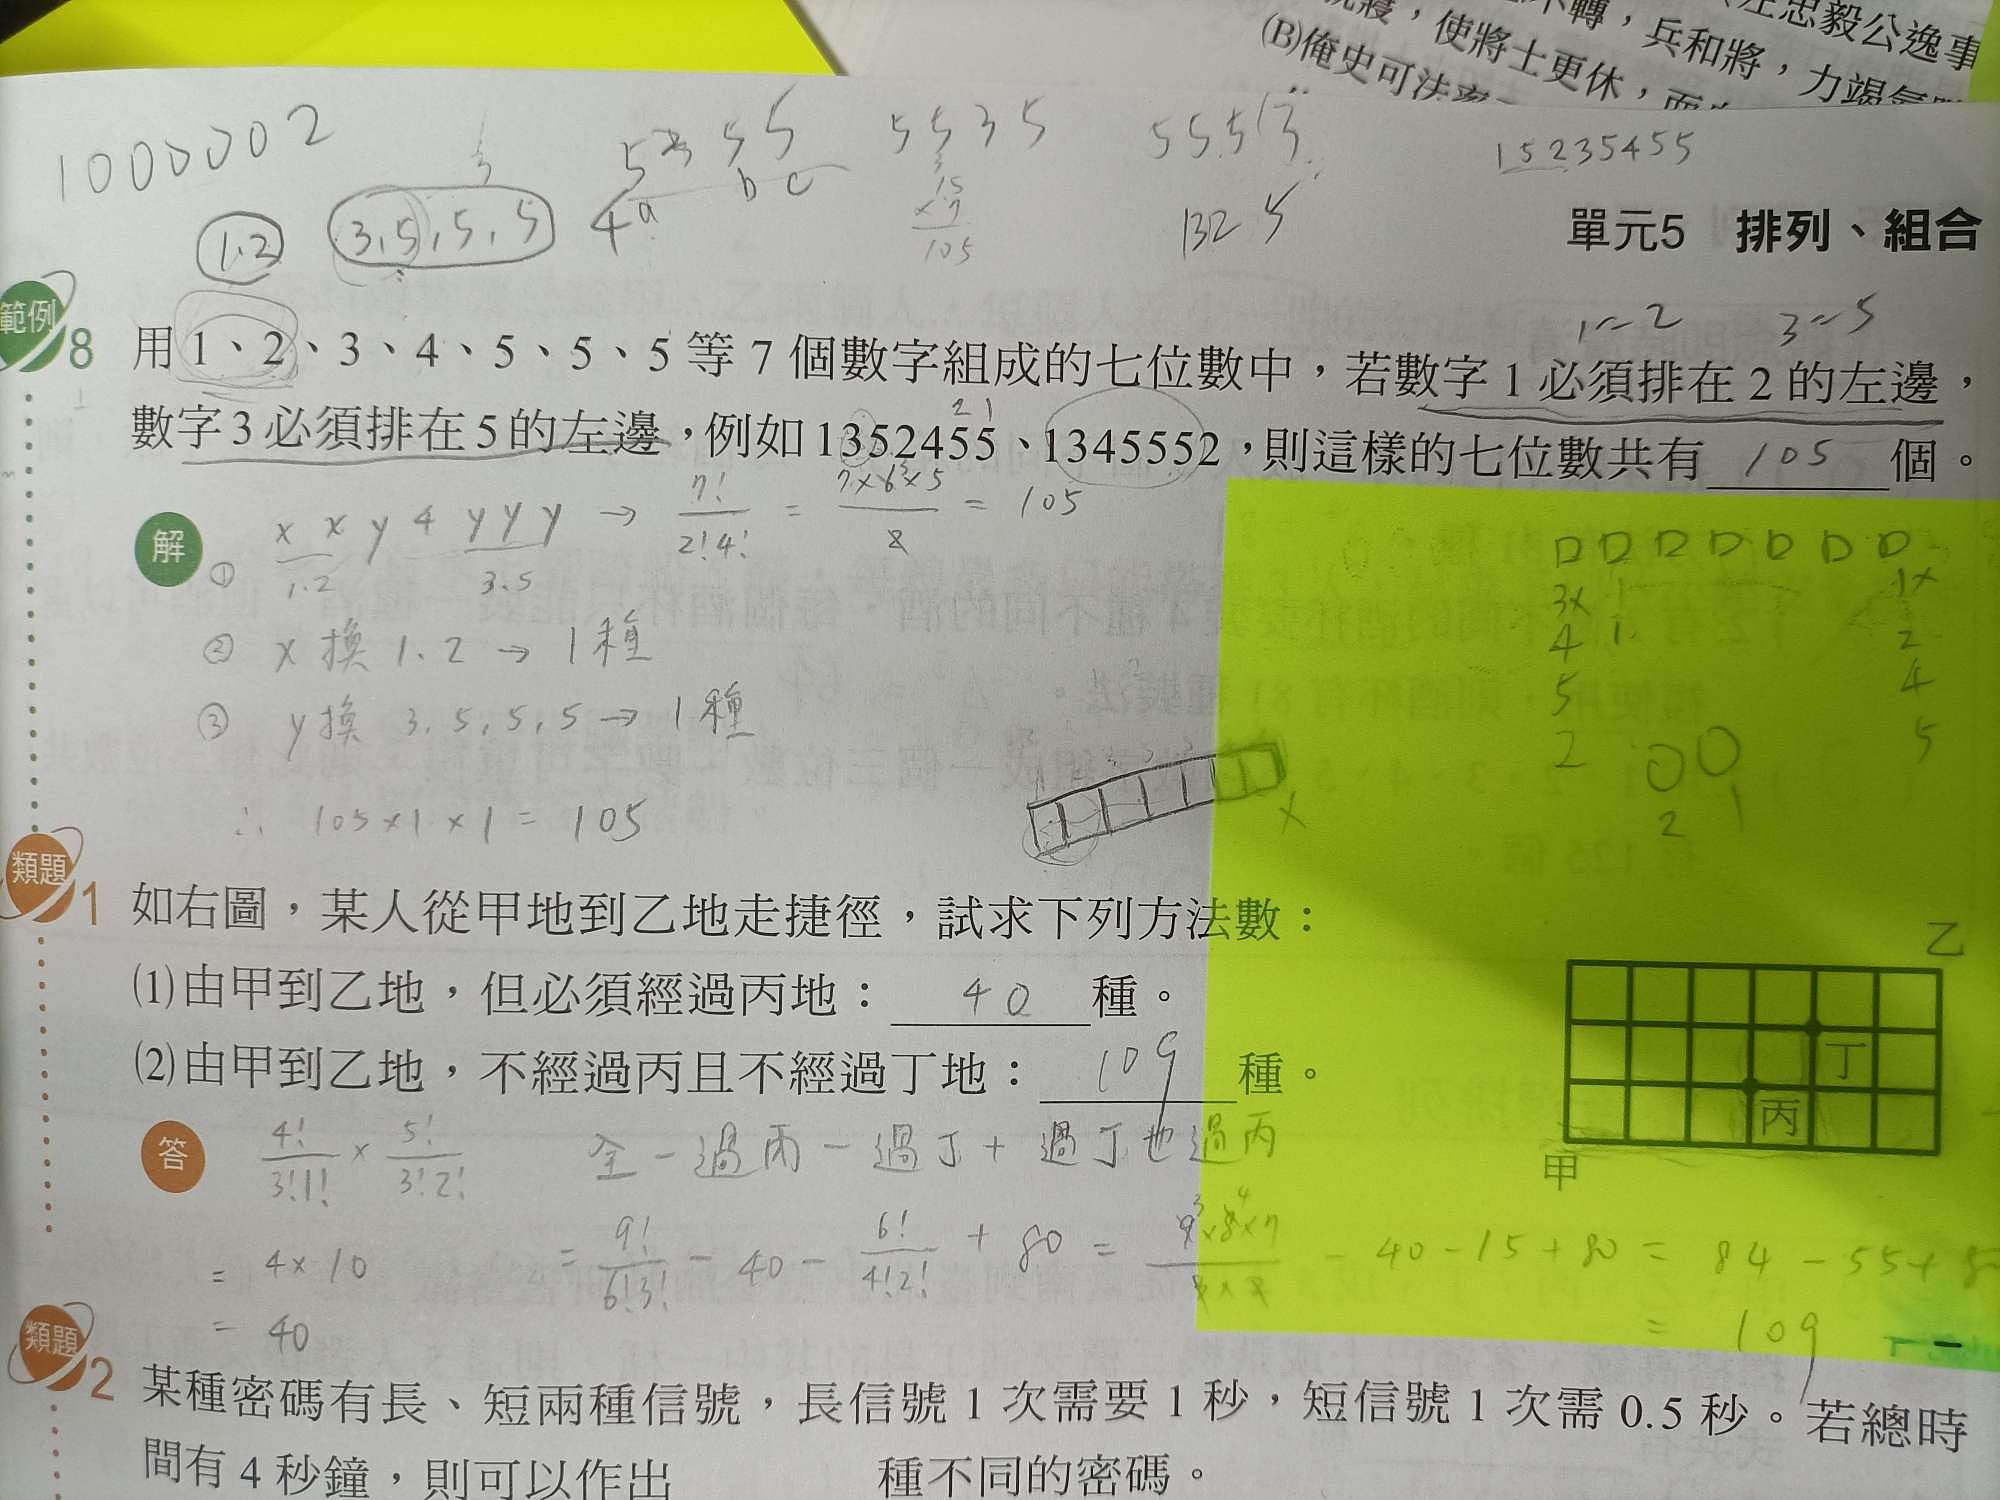 轉，兵和將，力竭
(左忠毅公逸事
，使將士更休，而
(B)俺史可法率
1000002
5 5 3 5
5 5 5 1 3
15235455
1.2
3,5,5,5
4
a b c
15
×7
105
132 5
單元5 排列、組合
1~2 3~5
範例8 用1、2、3、4、5、5、5等7個數字組成的七位數中，若數字1必須排在2的左邊，
數字3必須排在5的左邊，例如1352455、1345552，則這樣的七位數共有 105 個。
解 ① x x y 4 y y y → 7!/2!4! = 7×6×5/2 = 105
1.2 3.5
② x換1.2→1種
③ y換3,5,5,5→1種
∴ 105×1×1=105
3× 1 1×
4 1. 2
5 4
2 5
2 1
類題1 如右圖，某人從甲地到乙地走捷徑，試求下列方法數：
(1)由甲到乙地，但必須經過丙地： 40 種。
(2)由甲到乙地，不經過丙且不經過丁地： 109 種。
乙
丁
丙
甲
答 4!/3!1! × 5!/3!2!
= 4×10
= 40
全－過丙－過丁＋過丁也過丙
= 9!/6!3! - 40 - 6!/4!2! + 80 = 9×8×7/3×2 - 40-15+80 = 84-55+80
= 109
類題2 某種密碼有長、短兩種信號，長信號1次需要1秒，短信號1次需0.5秒。若總時
間有4秒鐘，則可以作出 種不同的密碼。